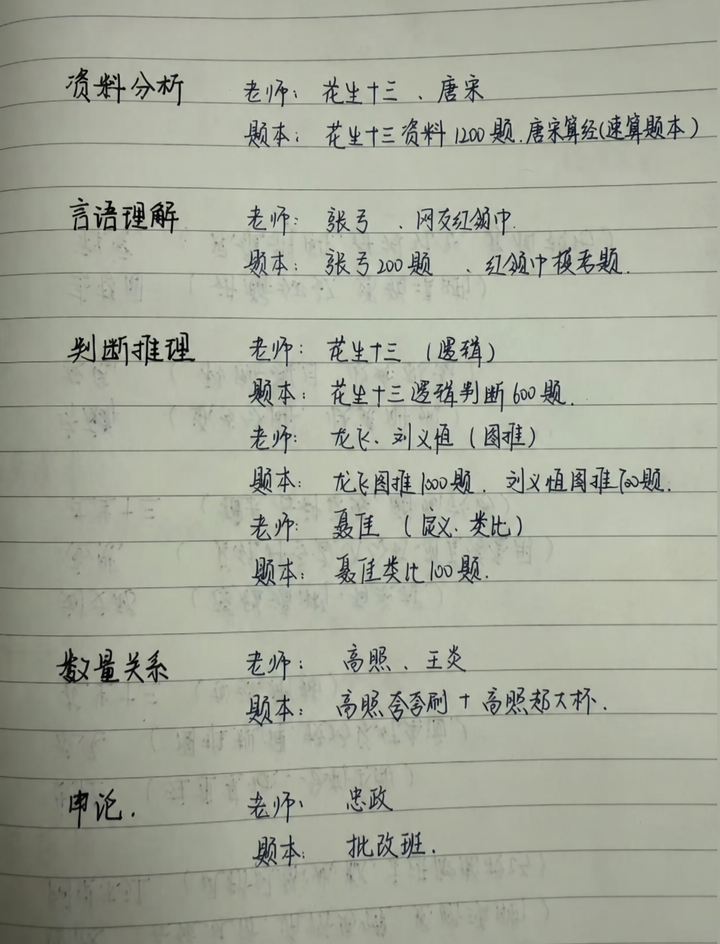 资料分析 老师：花生十三、唐宋
题本：花生十三资料1200题、唐宋算经(速算题本)
言语理解 老师：张弓、网友红领巾
题本：张弓200题、红领巾模考题.
判断推理 老师：花生十三（逻辑）
题本：花生十三逻辑判断600题.
老师：龙飞、刘义恒（图推）
题本：龙飞图推1000题、刘义恒图推700题.
老师：聂佳（定义、类比）
题本：聂佳类比100题.
数量关系 老师：高照、王炎
题本：高照夸夸刷+高照超大杯.
申论. 老师：忠政
题本：批改班.